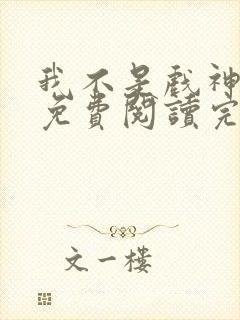 我不是戲神
免費閱讀完
文一樓